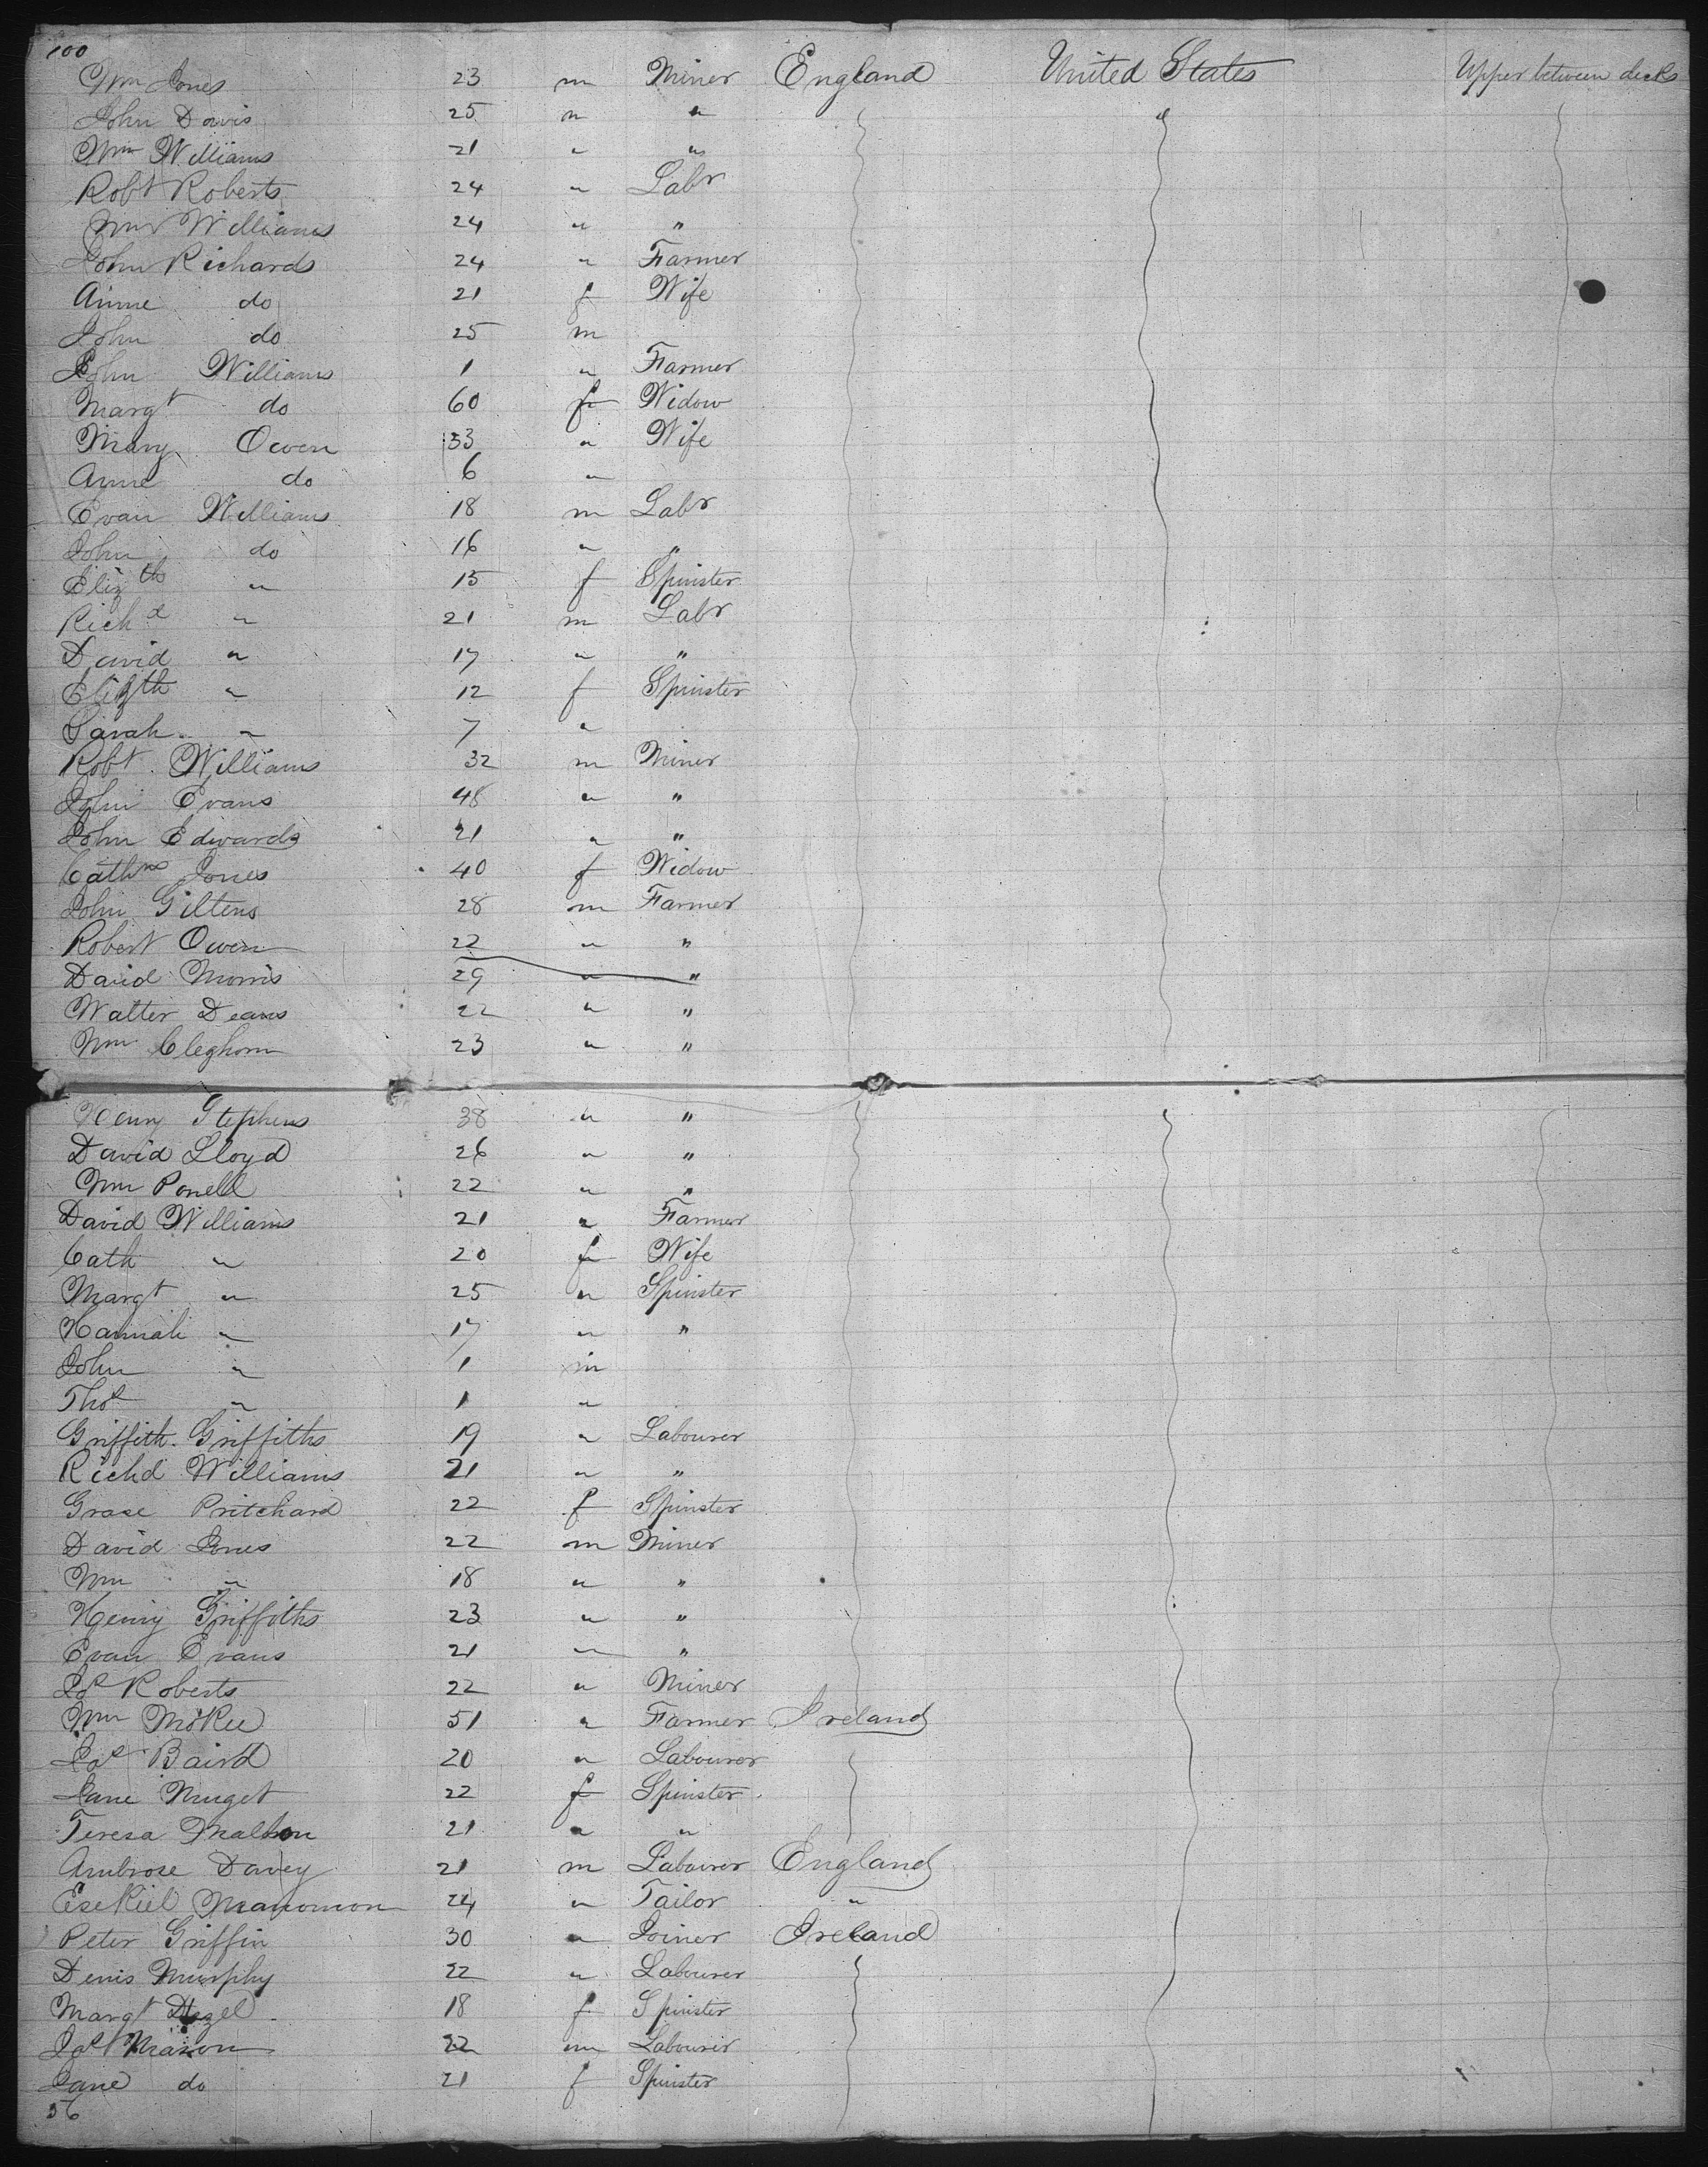 100
Wm Jones 23 m Miner England United States Upper between decks
John Davis 25 " "
Wm Williams 21 " "
Robt Roberts 24 " Labr
Wm Williams 24 " "
John Richards 24 " Farmer
Anne do 21 f Wife
John do 25 m
John Williams 1 " Farmer
Margt do 60 f Widow
Mary Owen 33 " Wife
Anne do 6 "
Evan Williams 18 m Labr
John do 16 " "
Elizth " 15 f Spinster
Richd " 21 m Labr
David " 17 " "
Elizth " 12 f Spinster
Sarah " 7 "
Robt Williams 32 m Miner
John Evans 48 " "
John Edwards 21 " "
Cathne Jones 40 f Widow
John Giltens 28 m Farmer
Robert Owen 22 " "
David Morris 29 " "
Walter Deans 22 " "
Wm Cleghorn 23 " "
Henry Stephens 38 " "
David Lloyd 26 " "
Wm Powell 22 " "
David Williams 21 " Farmer
Cath " 20 f Wife
Margt " 25 " Spinster
Hannah " 17 " "
John " 1 m
Thos " 1 "
Griffith Griffiths 19 " Labourer
Richd Williams 21 " "
Grace Pritchard 22 f Spinster
David Jones 22 m Miner
Wm " 18 " "
Henry Griffiths 23 " "
Evan Evans 21 " "
Jos Roberts 22 " Miner
Wm McKee 51 " Farmer Ireland
Jas Baird 20 " Labourer
Jane Nuget 22 f Spinster
Teresa 21 " "
Ambrose Davey 21 m Labourer England
Esekiel 24 " Tailor "
Peter Griffin 30 " Joiner Ireland
Denis Murphy 22 " Labourer
Margt 18 f Spinster
Jas Mason 22 m Labourer
Jane do 21 f Spinster
56